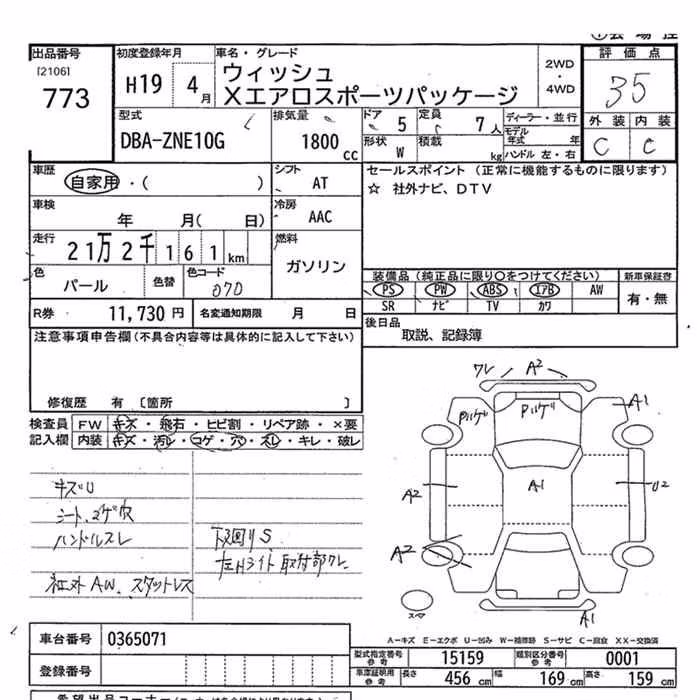 出品番号 初度登録年月 車名・グレード 2WD ・ 4WD 評価点
[2106]
773 H19 4月 ウィッシュ
Xエアロスポーツパッケージ 35
型式 排気量 ドア 5 定員 7人 ディーラー・並行 外装 内装
DBA-ZNE10G 1800cc 形状 W 積載 kg モデル年式 年 C C
ハンドル 左・右
車歴 自家用・( ) シフト AT セールスポイント(正常に機能するものに限ります)
☆ 社外ナビ、DTV
車検 年 月( 日) 冷房 AAC
走行 21万2千161km 燃料 ガソリン
色 パール 色替 色コード 070
装備品(純正品に限り○をつけてください) 新車保証書
PS PW ABS エアB AW 有・無
SR ナビ TV カワ
R券 11,730円 名変通知期限 月 日
後日品 取説、記録簿
注意事項申告欄(不具合内容等は具体的に記入して下さい)
修復歴 有 〔箇所 〕
検査員 FW キズ・飛石・ヒビ割・リペア跡・×要
記入欄 内装 キズ・汚レ・コゲ・穴・スレ・キレ・破レ
キズU
シート、コゲ穴
ハンドルスレ
社外AW、スタッドレス
下回りS
左Hライト取付部ワレ
ワレ A2
Pハゲ Pハゲ A1
A2 A1 U2
A2
スペア A1
A-キズ E-エクボ U-凹み W-補修跡 S-サビ C-腐食 XX-交換済
車台番号 0365071
登録番号
型式指定番号 参考 15159 類別区分番号 参考 0001
車庫証明用 参考 長さ 456cm 幅 169cm 高さ 159cm